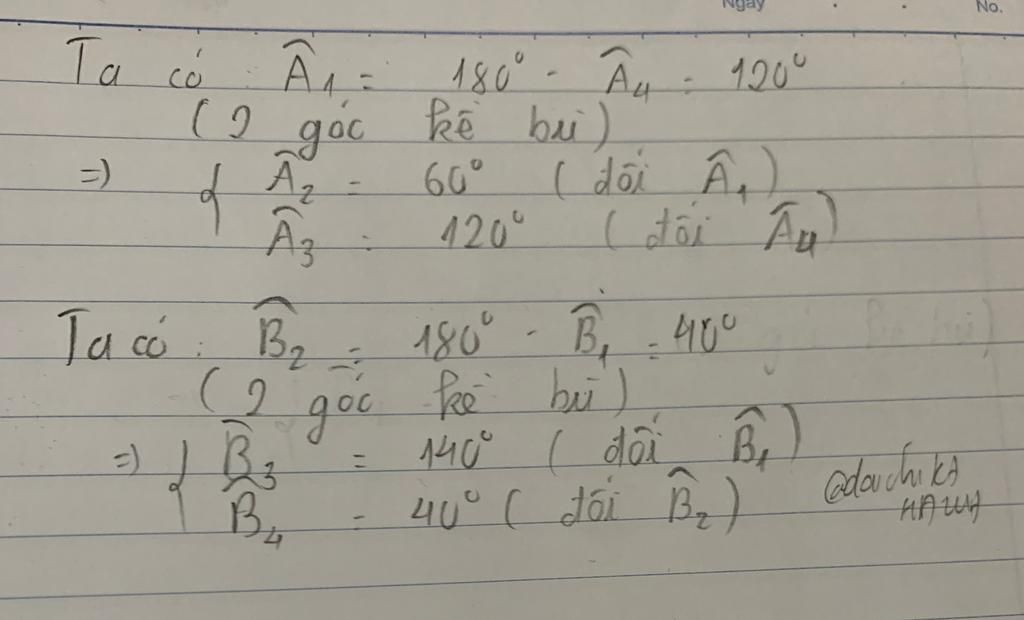 Ngày No.
Ta có : Â1 = 180° - Â4 = 120°
(2 góc kề bù)
=> { Â2 = 60° (đối Â1)
Â3 = 120° (đối Â4)
Ta có : B̂2 = 180° - B̂1 = 40°
(2 góc kề bù)
=> { B̂3 = 140° (đối B̂1)
B̂4 = 40° (đối B̂2)